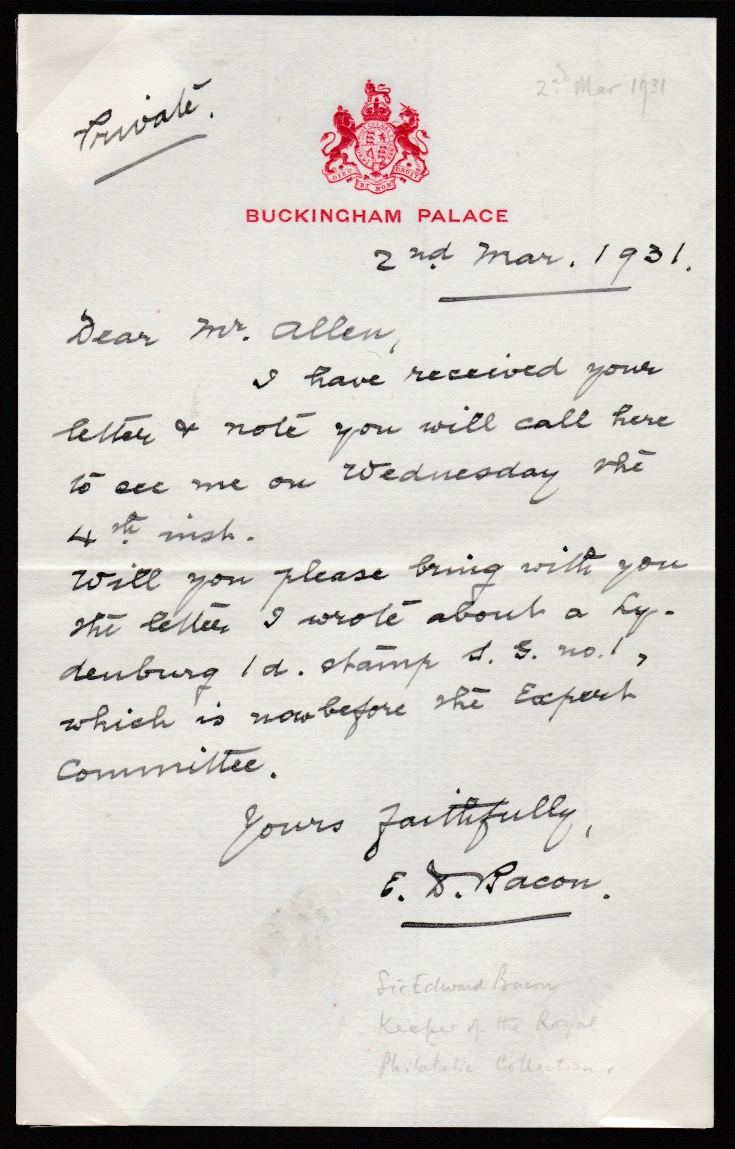 2nd Mar 1931
Private.
DIEU ET MON DROIT
BUCKINGHAM PALACE
2nd Mar. 1931.
Dear Mr. Allen,
I have received your
letter & note you will call here
to see me on Wednesday the
4th inst.
Will you please bring with you
the letter I wrote about a Ly-
denburg 1d. stamp S. G. no. 1,
which is now before the Expert
Committee.
Yours faithfully,
E. D. Bacon.
Sir Edward Bacon
Keeper of the Royal
Philatelic Collection.